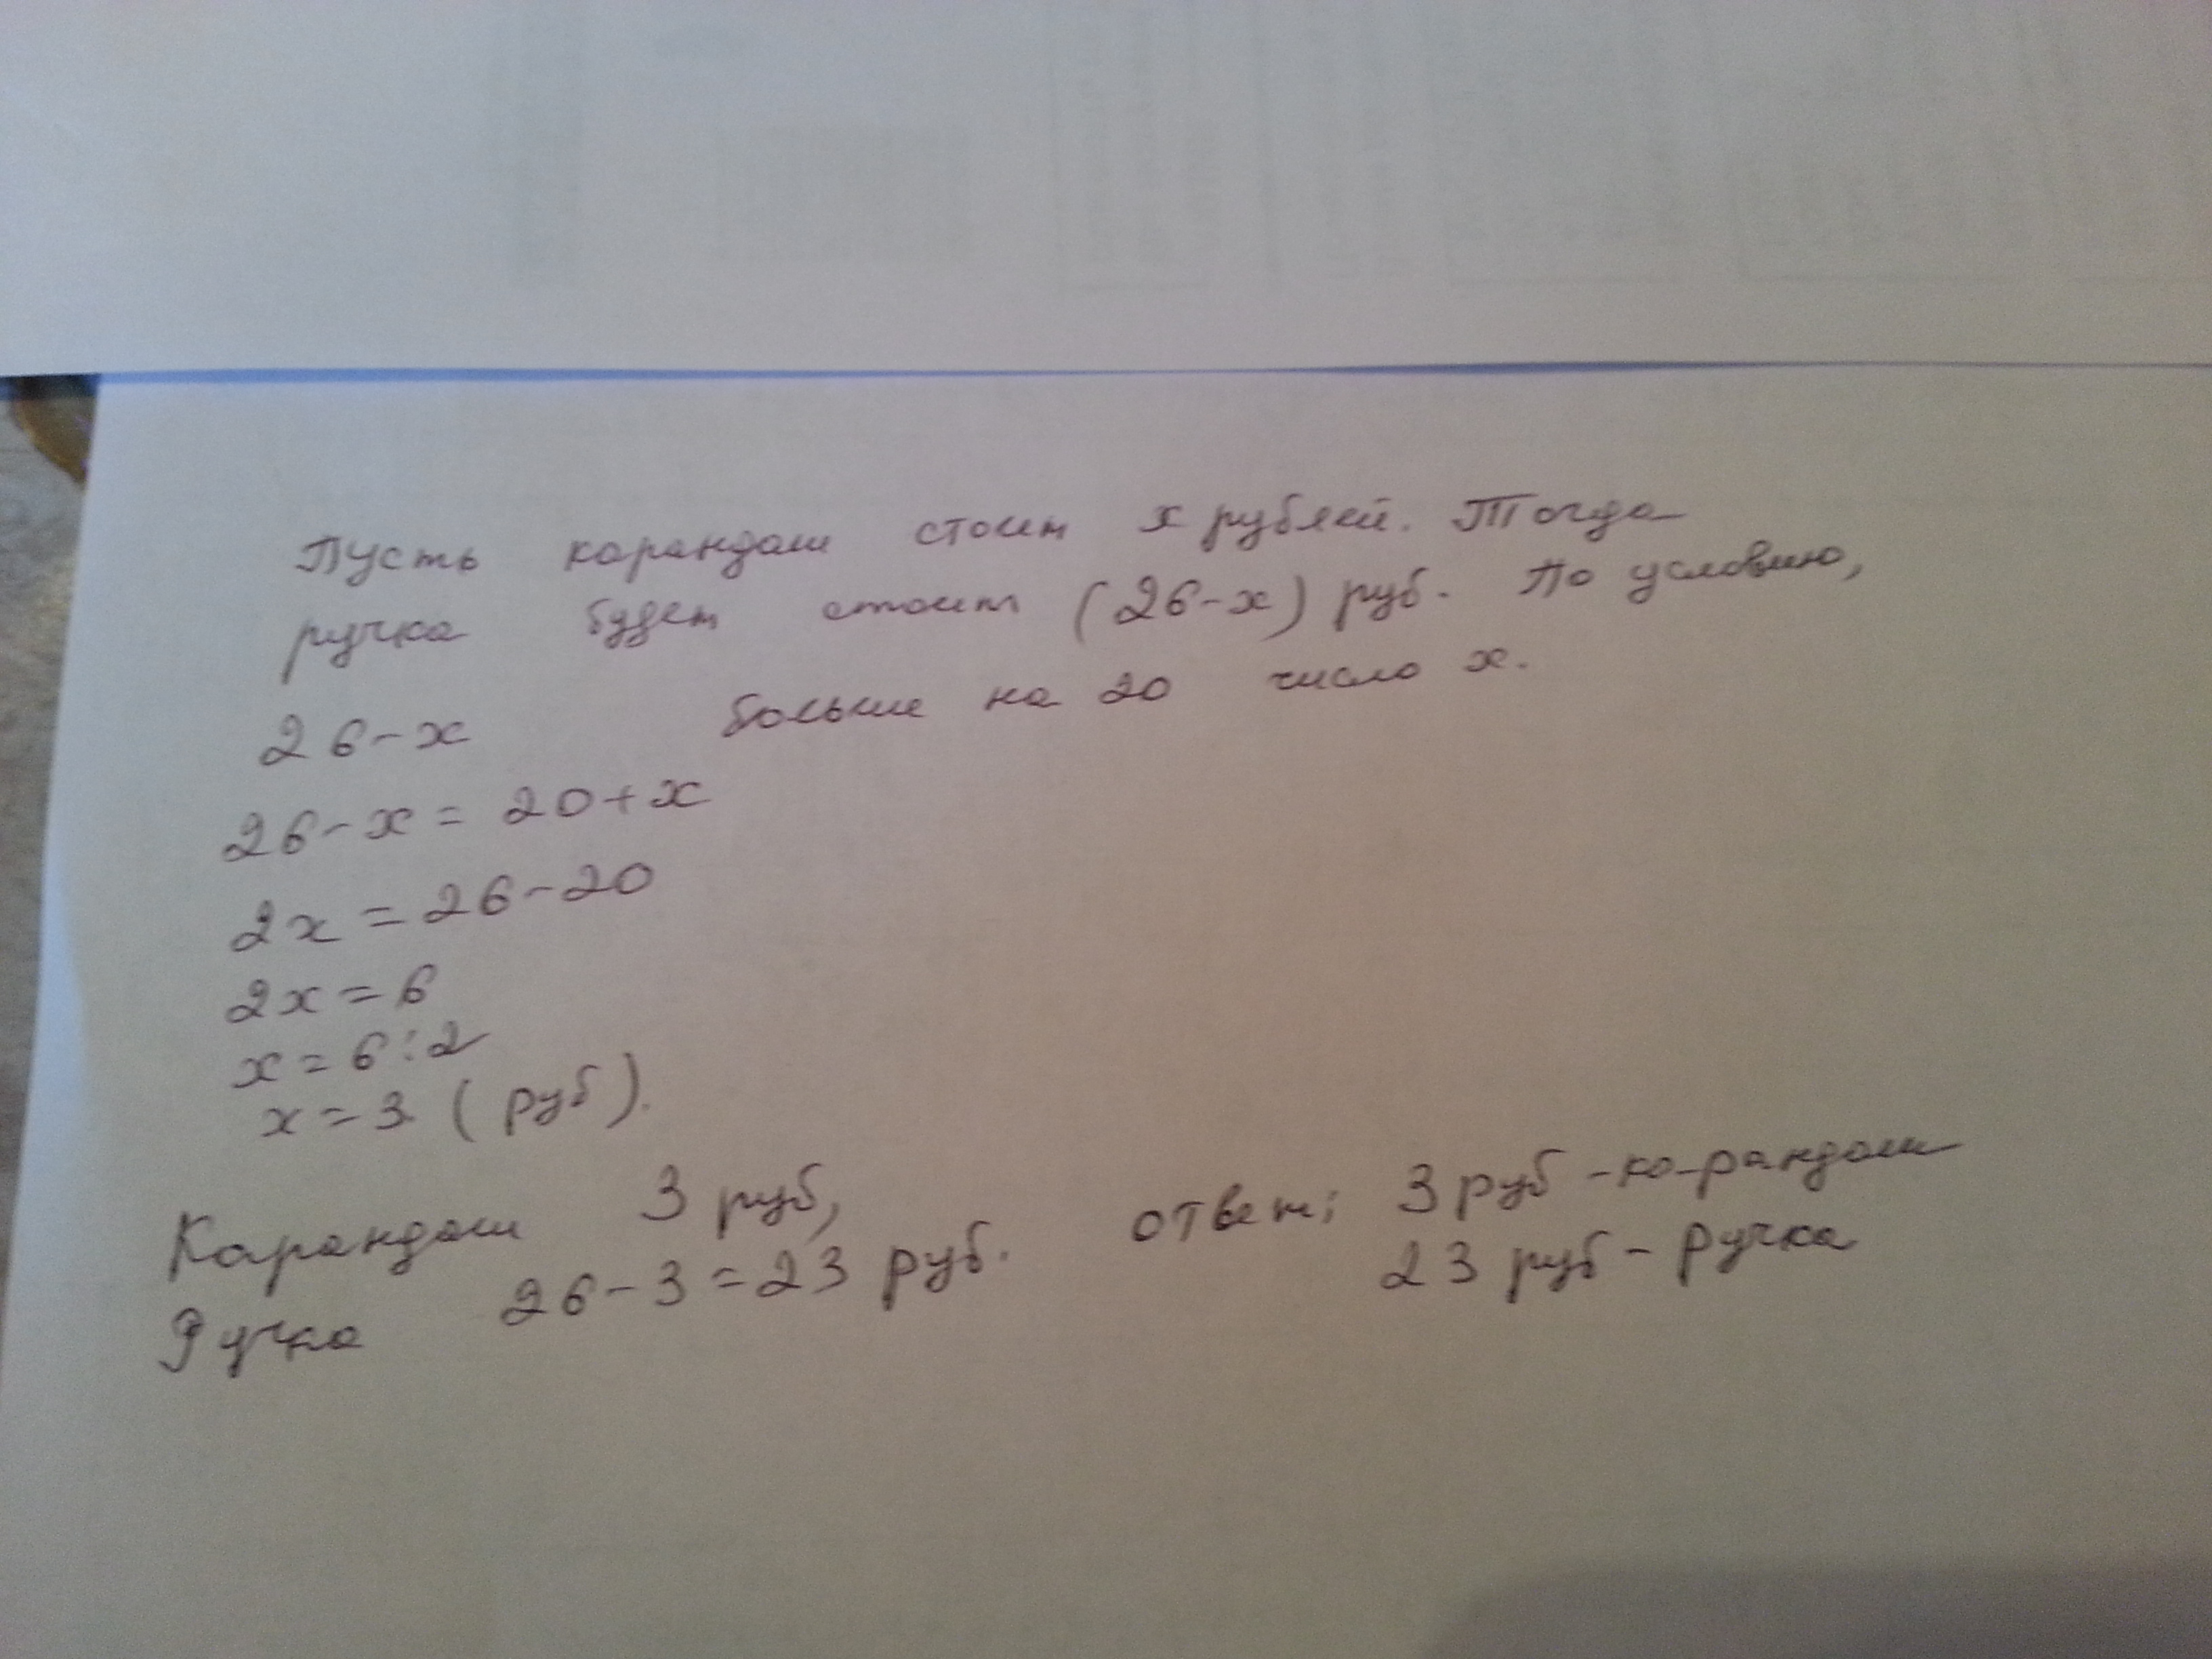 Пусть карандаш стоит x рублей. Тогда
ручка будет стоит (26-x) руб. По условию,
26-x больше на 20 число x.
26-x = 20+x
2x = 26-20
2x = 6
x = 6:2
x = 3 (руб).
Карандаш 3 руб,
Ручка 26-3=23 руб.
ответ: 3 руб - ка-рандаш
23 руб - ручка